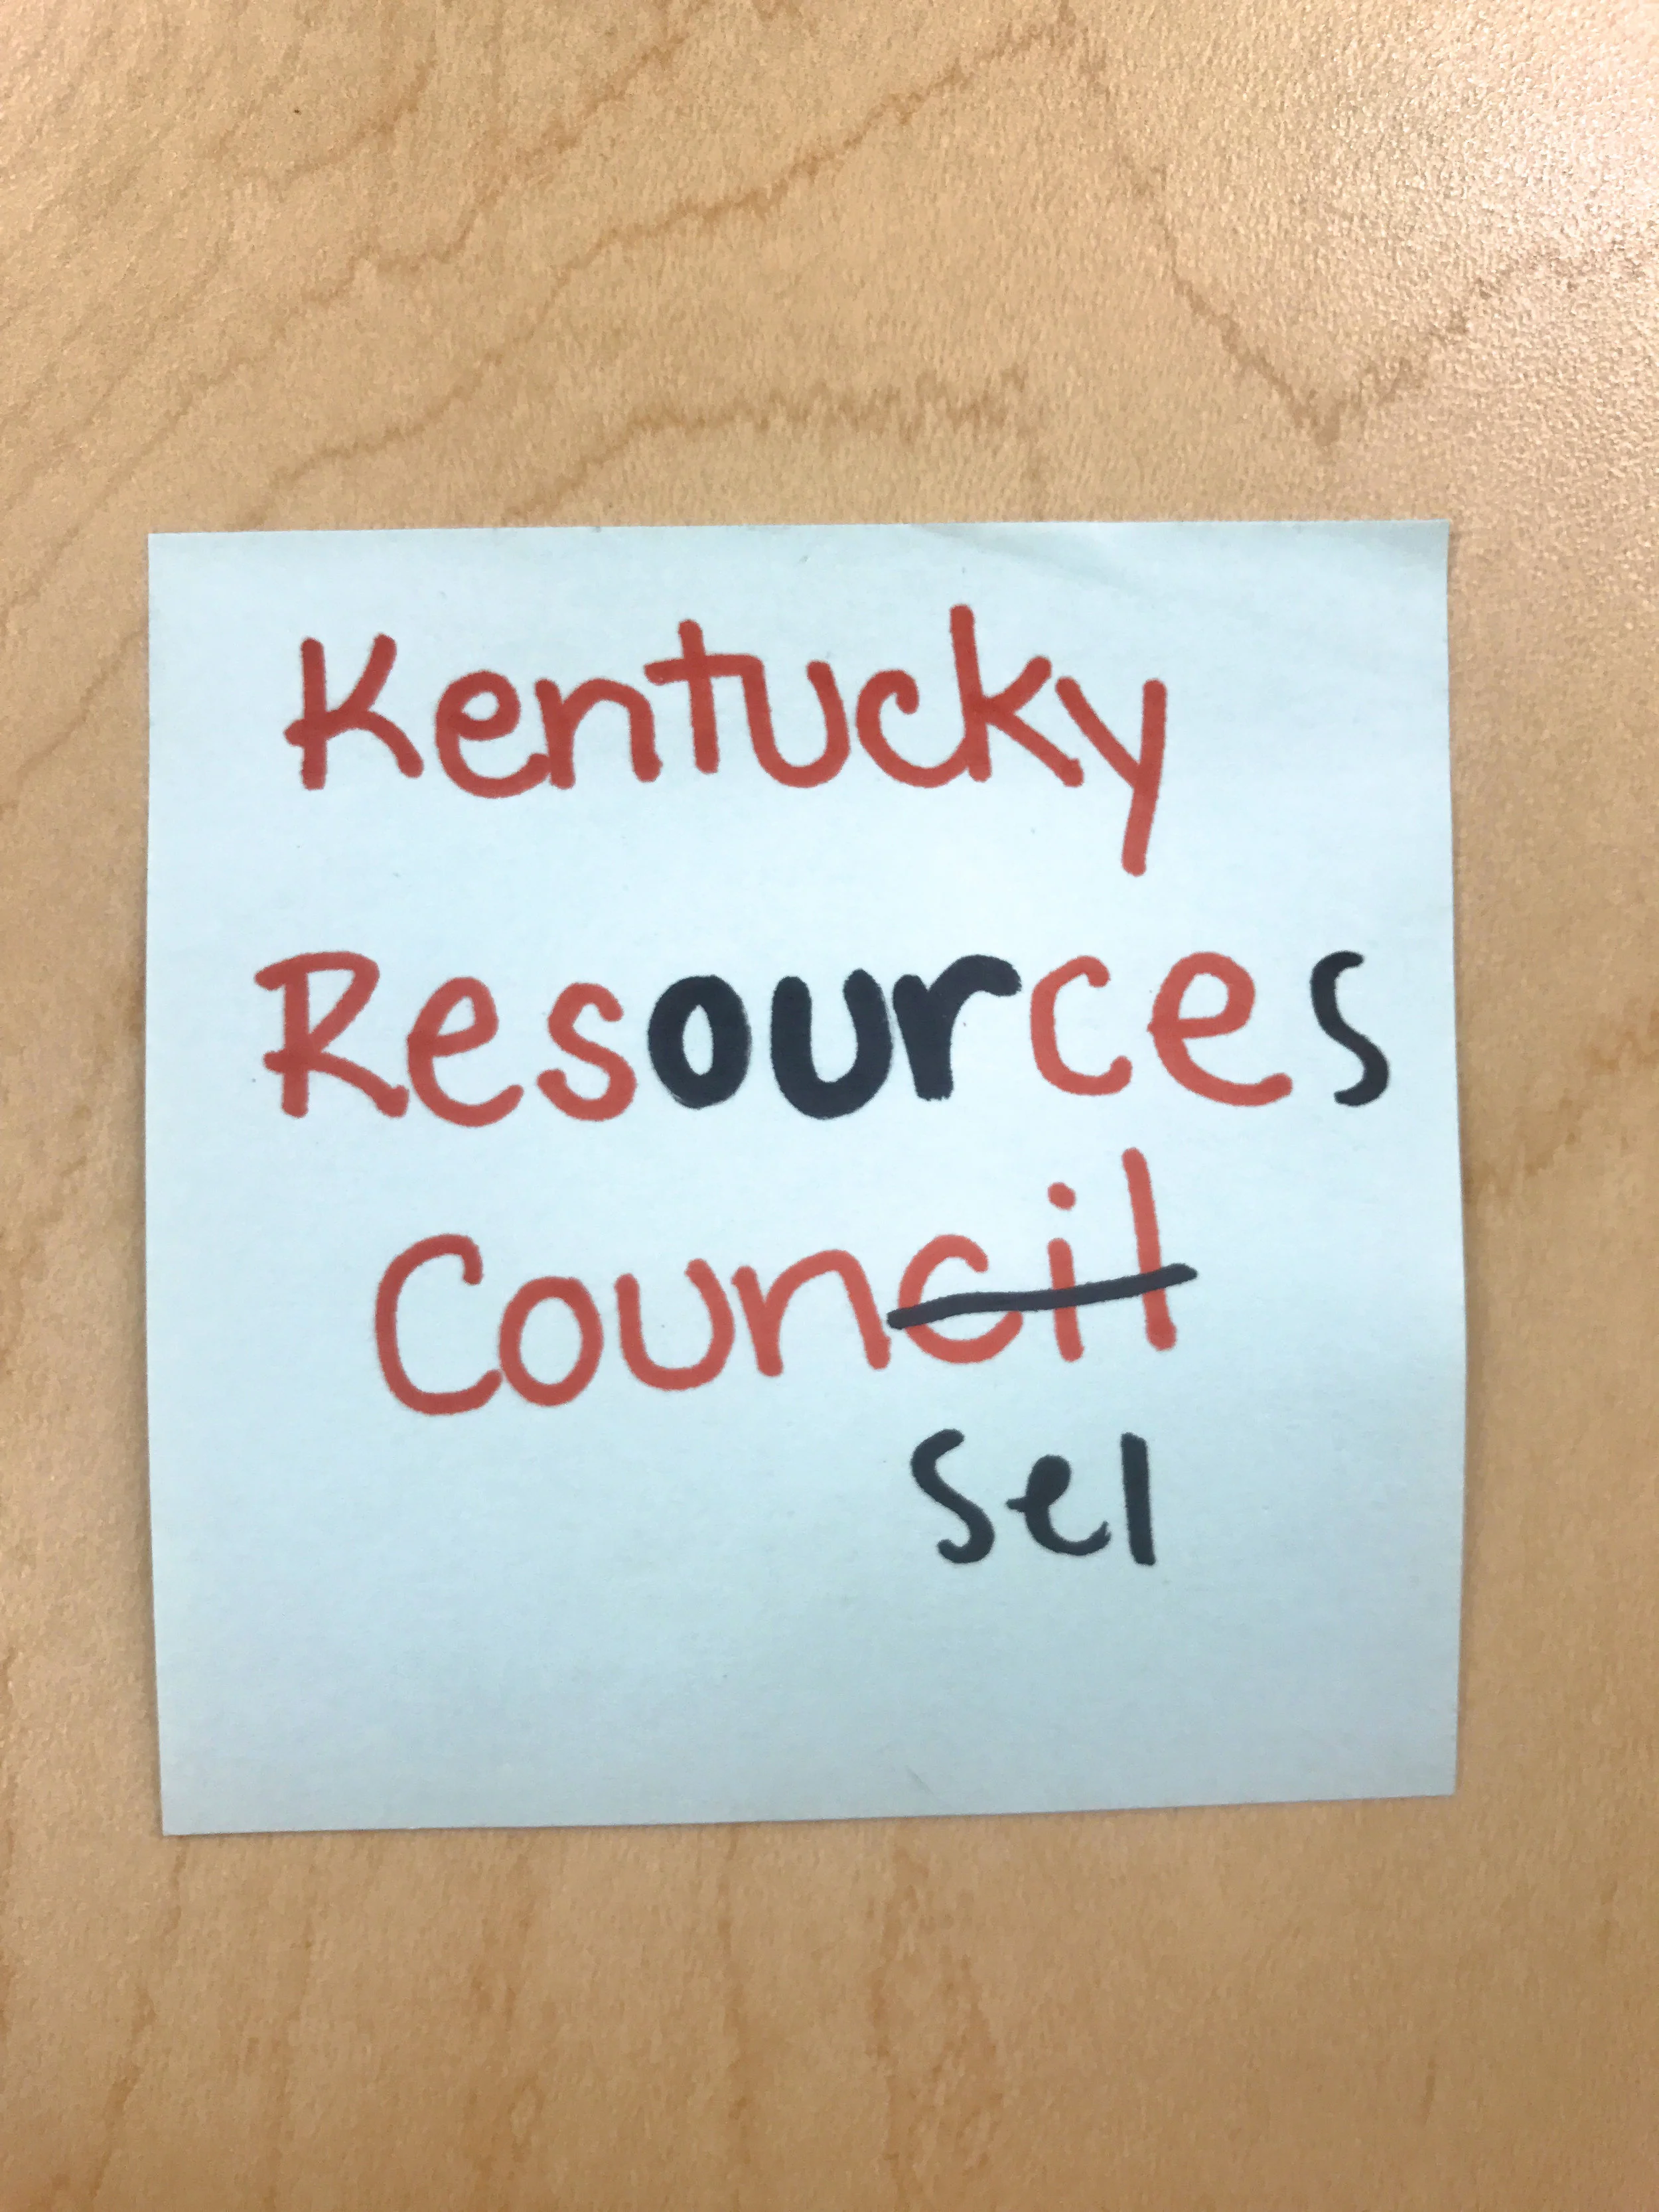 Kentucky
Resources
Council
sel